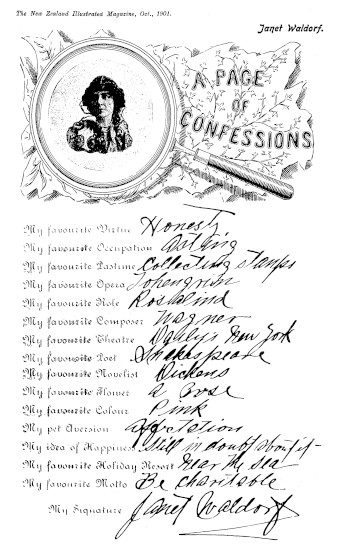 The New Zealand Illustrated Magazine, Oct., 1901.
Janet Waldorf.
A PAGE
OF
CONFESSIONS
My favourite Virtue Honesty
My favourite Occupation Acting
My favourite Pastime Collecting Stamps
My favourite Opera Lohengrin
My favourite Role Rosalind
My favourite Composer Wagner
My favourite Theatre Dahlys New York
My favourite Poet Shakespeare
My favourite Novelist Dickens
My favourite Flower a rose
My favourite Colour Pink
My pet Aversion affectation
My idea of Happiness Still in doubt about it
My favourite Holiday Resort Near the Sea
My favourite Motto Be charitable
My Signature Janet Waldorf